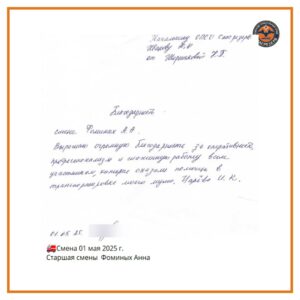 Начальнику
от
Благодарность
смена Фоминых А.А.
Выражаю огромную благодарность за оперативность,
профессионализм и слаженную работу всем
участникам, которые оказали помощь в
транспортировке моего мужа, И. К.
01.05.25.
Смена 01 мая 2025 г.
Старшая смены Фоминых Анна